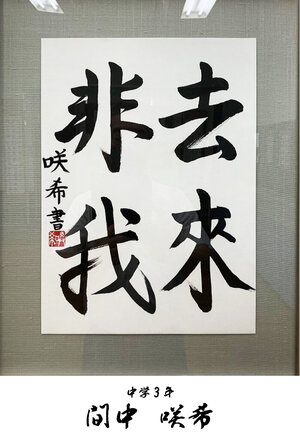 去來
非我
咲希書
中学3年
間中 咲希